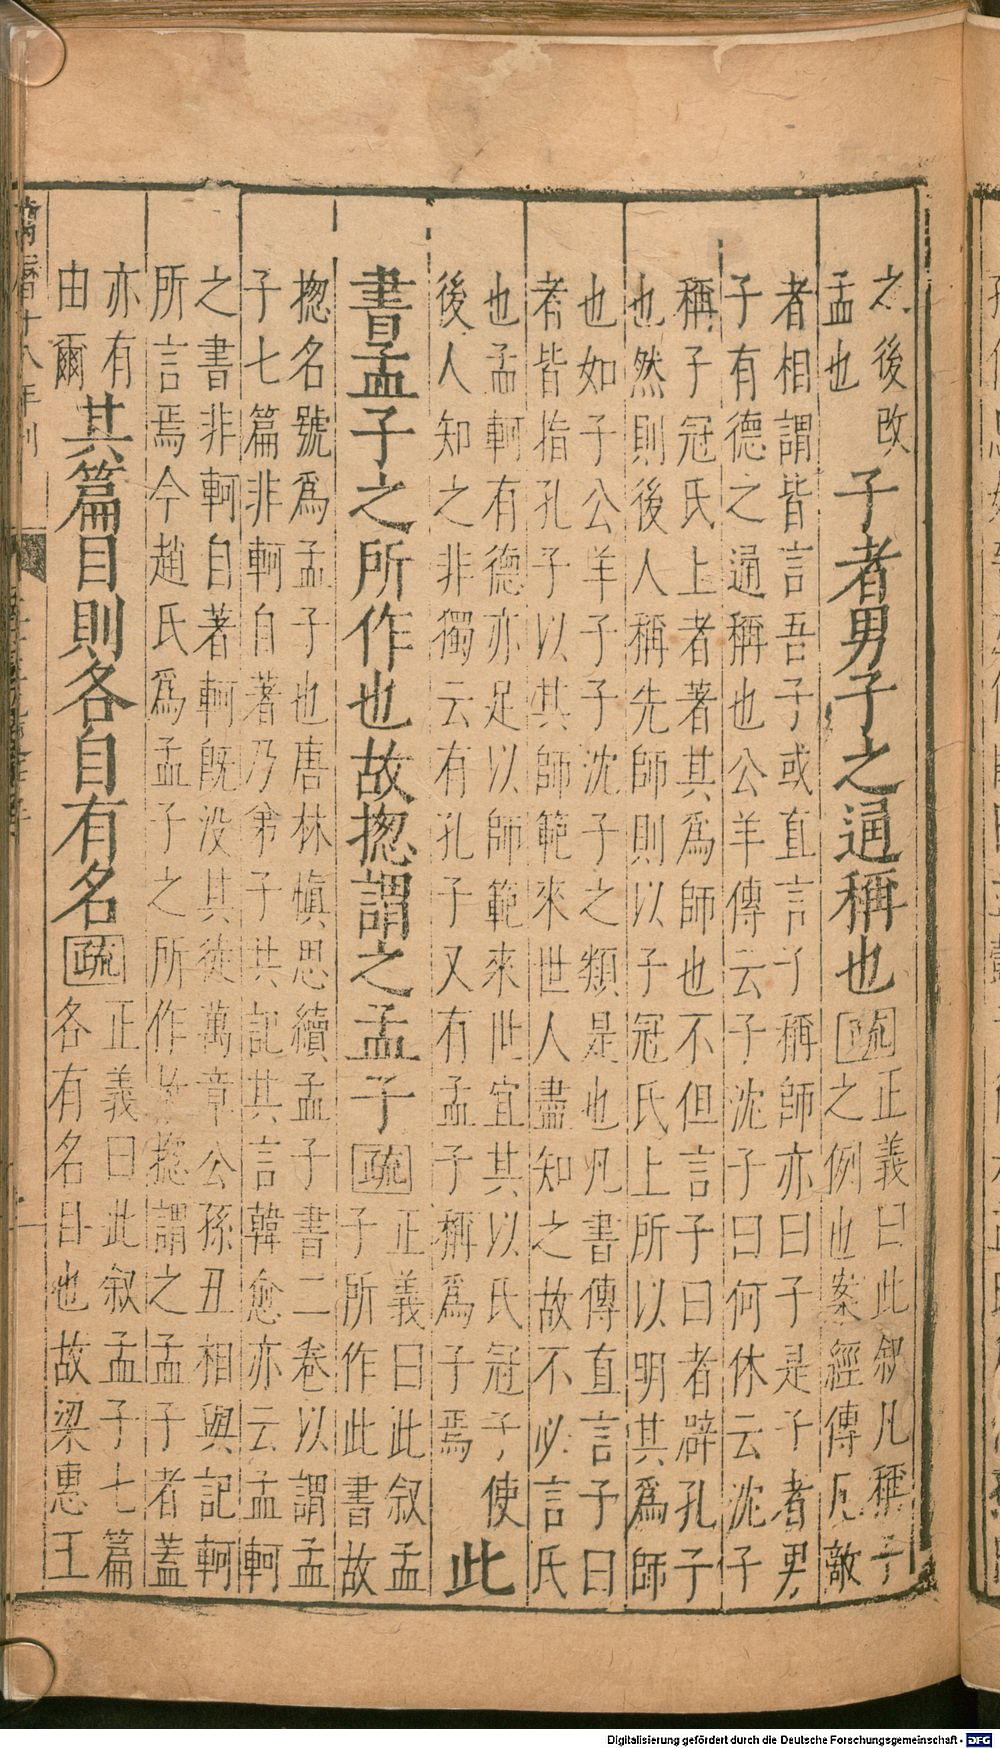 之後改
孟也
子者男子之通稱也
疏
正義曰此叙凡稱子
之例也案經傳凡敵
者相謂皆言吾子或直言子稱師亦曰子是子者男
子有德之通稱也公羊傳云子沈子曰何休云沈子
稱子冠氏上者著其爲師也不但言子曰者辟孔子
也然則後人稱先師則以子冠氏上所以明其爲師
也如子公羊子子沈子之類是也凡書傳直言子曰
者皆指孔子以其師範來世人盡知之故不必言氏
也孟軻有德亦足以師範來世宜其以氏冠子使
後人知之非獨云有孔子又有孟子稱爲子焉
此
書孟子之所作也故揔謂之孟子
疏
正義曰此叙孟
子所作此書故
揔名號爲孟子也唐林慎思續孟子書二卷以謂孟
子七篇非軻自著乃弟子共記其言韓愈亦云孟軻
之書非軻自著軻旣没其徒萬章公孫丑相與記軻
所言焉今趙氏爲孟子之所作故揔謂之孟子者蓋
亦有
由爾
其篇目則各自有名
疏
正義曰此叙孟子七篇
各有名目也故梁惠王
萬曆十八年刊
Digitalisierung gefördert durch die Deutsche Forschungsgemeinschaft - DFG